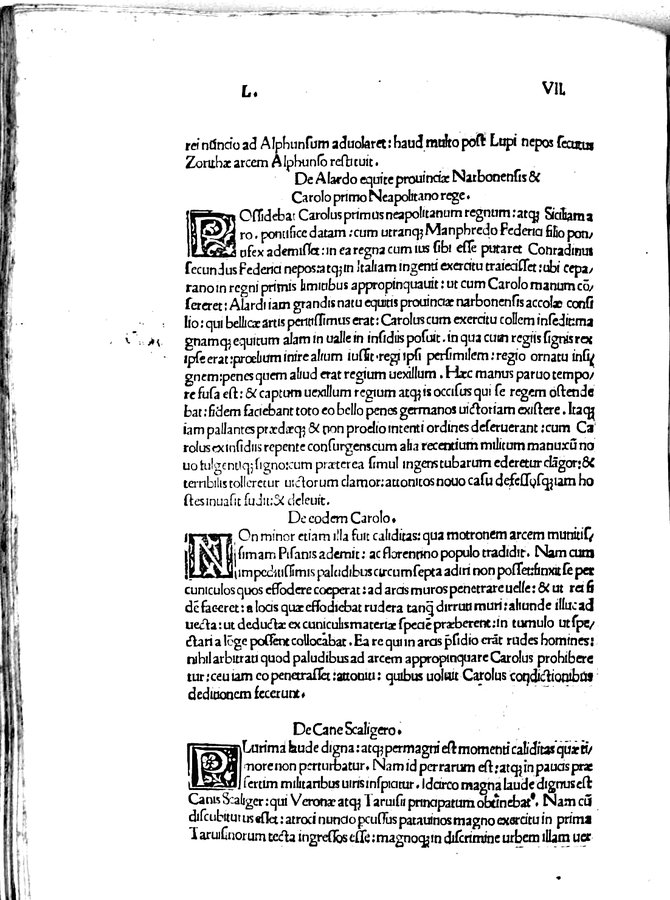 L. VII.
rei nũcio ad Alphunsum aduolaret: haud multo post Lupi nepos secutus
Zorithæ arcem Alphunso restituit.
De Alardo equite prouinciæ Narbonensis &
Carolo primo Neapolitano rege.
POssidebat Carolus primus neapolitanum regnum: atq; Siciliam a
ro. pontifice datam: cum utranq; Manphredo Federici filio pon/
tifex ademisset: in ea regna cum ius sibi esse putaret Conradinus
secundus Federici nepos: atq; in Italiam ingenti exercitu traiecisset: ubi cepa/
rano in regni primis limitibus appropinquauit: ut cum Carolo manum cõ/
sereret: Alardi iam grandis natu equitis prouinciæ narbonensis accolæ consi
lio: qui bellicæ artis peritissimus erat: Carolus cum exercitu collem insedit: ma
gnamq; equitum alam in ualle in insidiis posuit. in qua cum regiis signis rex
ipse erat: prœlium inire alium iussit. regi ipsi persimilem: regio ornatu insi/
gnem: penes quem aliud erat regium uexillum. Hæc manus paruo tempo/
re fusa est: & captum uexillum regium atq; is occisus qui se regem ostende
bat: fidem faciebant toto eo bello penes germanos uictoriam existere. Itaq;
iam pallantes prædæq; & non prœlio intenti ordines deseruerant: cum Ca
rolus ex insidiis repente consurgens cum alia recentium militum manu: cũ no
uo fulgentiq; signo: cum præterea simul ingens tubarum ederetur clãgor: &
terribilis tolleretur uictorum clamor: attonitos nouo casu defessosq; iam ho
stes inuasit fudit: & deleuit.
De eodem Carolo.
NOn minor etiam illa fuit caliditas: qua motronem arcem munitis/
simam Pisanis ademit: ac florentino populo tradidit. Nam cum
impeditissimis paludibus circumsepta adiri non posset: finxit se per
cuniculos quos effodere cœperat: ad arcis muros penetrare uelle: & ut rei fi
dẽ faceret: a locis quæ effodiebat rudera tanq̃ diruti muri: aliunde illuc ad
uecta: ut deductæ ex cuniculis materiæ speciẽ præberent: in tumulo ut spe/
ctari a lõge possent collocabat. Ea re qui in arcis p̃sidio erãt rudes homines:
nihil arbitrati quod paludibus ad arcem appropinquare Carolus prohibere
tur: ceu iam eo penetrasset: attoniti: quibus uoluit Carolus condictionibus
deditionem fecerunt.
De Cane Scaligero.
PLurima laude digna: atq; permagni est momenti caliditas quæ ti/
more non perturbatur. Nam id perrarum est: atq; in paucis præ
sertim militaribus uiris inspicitur. Idcirco magna laude dignus est
Canis Scaliger: qui Veronæ atq; Taruisii principatum obtinebat. Nam cũ
discubiturus esset: atroci nuncio pcussus patauinos magno exercitu in prima
Taruisinorum tecta ingressos esse: magnoq; in discrimine urbem illam uer